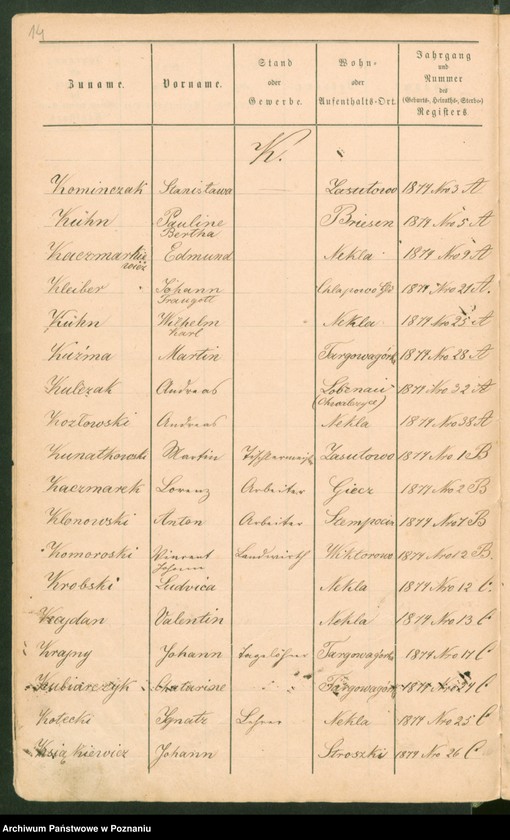 14
Zuname. Vorname. Stand oder Gewerbe. Wohn- oder Aufenthalts-Ort. Jahrgang und Nummer des (Geburts-, Heiraths-, Sterbe-) Registers
K.
Kominczak Stanisława Zasutowo 1874 Nro 3 A
Kühn Pauline Bertha Briesen 1874 Nro 5 A
Edmund Nekla 1874 Nro 9 A
Kleiber Johann Traugott Chlapowo 1874 Nro 21 A.
Kühn Wilhelm Karl Nekla 1874 Nro 25 A
Kuźma Martin Targowagórka 1874 Nro 28 A
Kulczak Andreas 1874 Nro 32 A
Kozłowski Andreas Nekla 1874 Nro 38 A
Kunatkowski Martin Zasutowo 1874 Nro 1 B
Kaczmarek Lorenz Arbeiter Giecz 1874 Nro 2 B
Klonowski Anton Arbeiter 1874 Nro 7 B
Komoroski Vincent Johann Landwirth Wiktorowo 1874 Nro 12 B.
Krobski Ludvica Nekla 1874 Nro 12 C.
Valentin Nekla 1874 Nro 13 C
Krajny Johann Tagelöhner Targowagórka 1874 Nro 17 C
Kubiarczyk Chatarine Targowagórka 1874 C
Kotecki Ignatz Lehrer Nekla 1874 Nro 25 C
Książkiewicz Johann Stroszki 1874 Nro 26 C
Archiwum Państwowe w Poznaniu